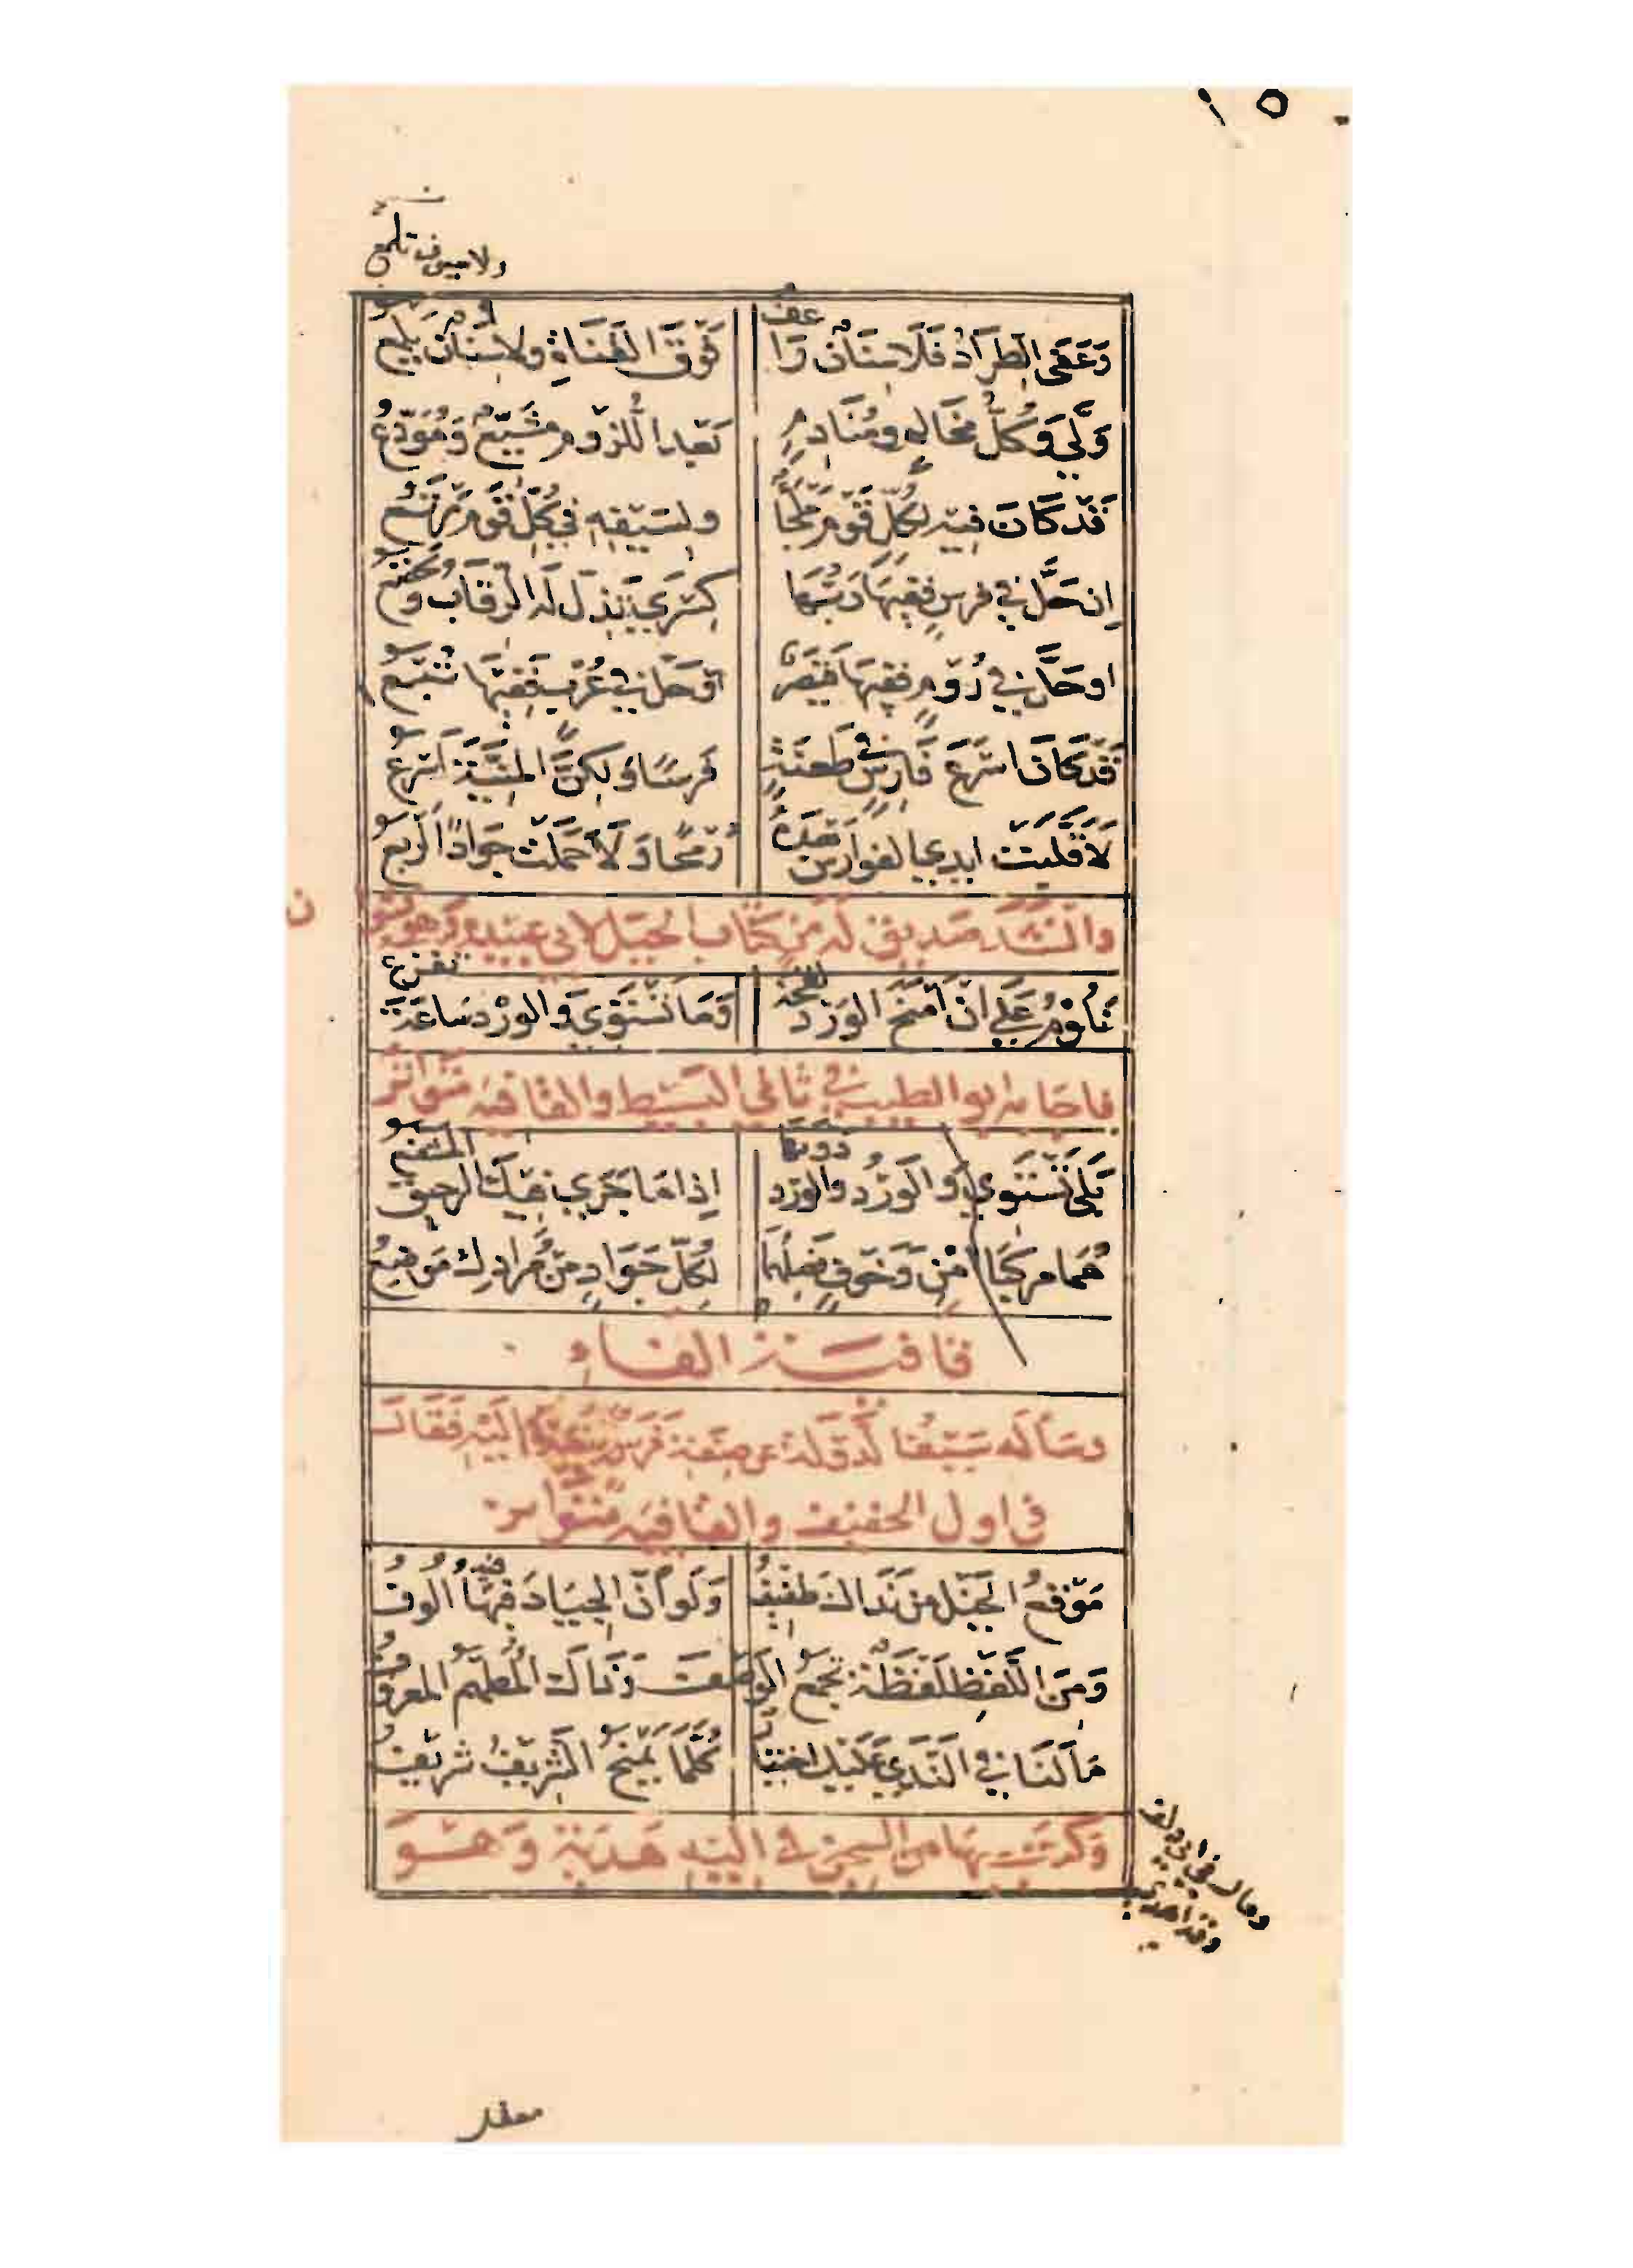 ١٥
ولا سيوف تلمع
وَعَفَى الطِرَادُ فَلَا سِنَانٌ رَاعف فَوْقَ القَنَاةِ ولا سِنَانٌ يَلمع
وَلَّى وَكُلُّ مخَالِمٍ ومُنَادِمٍ بَعْدَ اللزُومِ مُشَيِّعٌ وَمُوَدِّعُ
قَدْ كَانَ فيهِ لِكُلِّ قَوْمٍ مَلْجَأٌ ولِسَيْفِهِ في كُلِّ قَوْمٍ مَرْتَعُ
إن حَلَّ في فرسٍ فَفِيهَا رَبُّهَا كِسْرَى تَذِلُّ لَهُ الرِّقَابُ وَتَخْضَعُ
او حَلَّ في رُوْمٍ ففيهَا قَيْصَرٌ أوْ حَلَّ في عُرْبٍ فَفِيْهَا تُبَّعُ
قَدْ كَانَ اسْرَعَ فَارِسٍ في طَعْنَةٍ فَرَسًا وَلكِنَّ المَنِيَّةَ أسْرَعُ
لَا قَلَّبَتْ ايدي الفوَارِسِ بَعْدَهُ رُمْحًا وَلَا حَمَلَتْ جَوَادًا أرْبَعُ
وانْشَدَ صَدِيقٌ لَهُ مِنْ كِتَابِ الخَيْلِ لابي عُبَيْدَةَ وَهو
تَلُوْمُ عَلَى انْ أمْنَحَ الوَرْدَ لقحَةً وَمَا تَسْتَوِي وَالوَرْدَ سَاعَةَ تفزع
فاجَابَهُ ابو الطيب في ثاني البَسِيْطِ والقافيه مُتَوَاتِر
بَلَى تَسْتَوِي وَالوَرْدُ والوَرْدُ دونهَا إذا مَا جَرَى فِيكَ الرحيقُ المشعشع
هُمَا مركَبَا أمْنٍ وَخَوفٍ فصِلْهُمَا لِكُلِّ جَوَادٍ مِنْ مُرَادِكَ مَوْضِعُ
قافيَةُ الفَاءِ
وسَألَه سَيْفُ الدَّوْلَةِ عن صِفَةِ فَرَسٍ يُنْفِذُهُ اليْهِ فَقَالَ
في اول الخفيف والقافيه مُتَوَاتِر
مَوْقعُ الخَيْلِ مِنْ نَدَاكَ طَفِيْفُ وَلَوْ أنَّ الجِيَادَ فيْهَا الُوفُ
وَمِنَ اللَّفْظِ لَفْظَةٌ تَجْمَعُ الوَصْفَ وَذَاكَ المُطَهَّمُ المعرُوفُ
مَا لَنَا في النَّدَى عَلَيْكَ اختِيَارٌ كُلَّمَا يَمْنَحُ الشَّرِيفُ شَرِيْفُ
وَكَتَبَ بهَا من السِّجْنِ في اليْهِ هَدِيَّة وَهو
وقال في ابي دلف
وقد اهدى